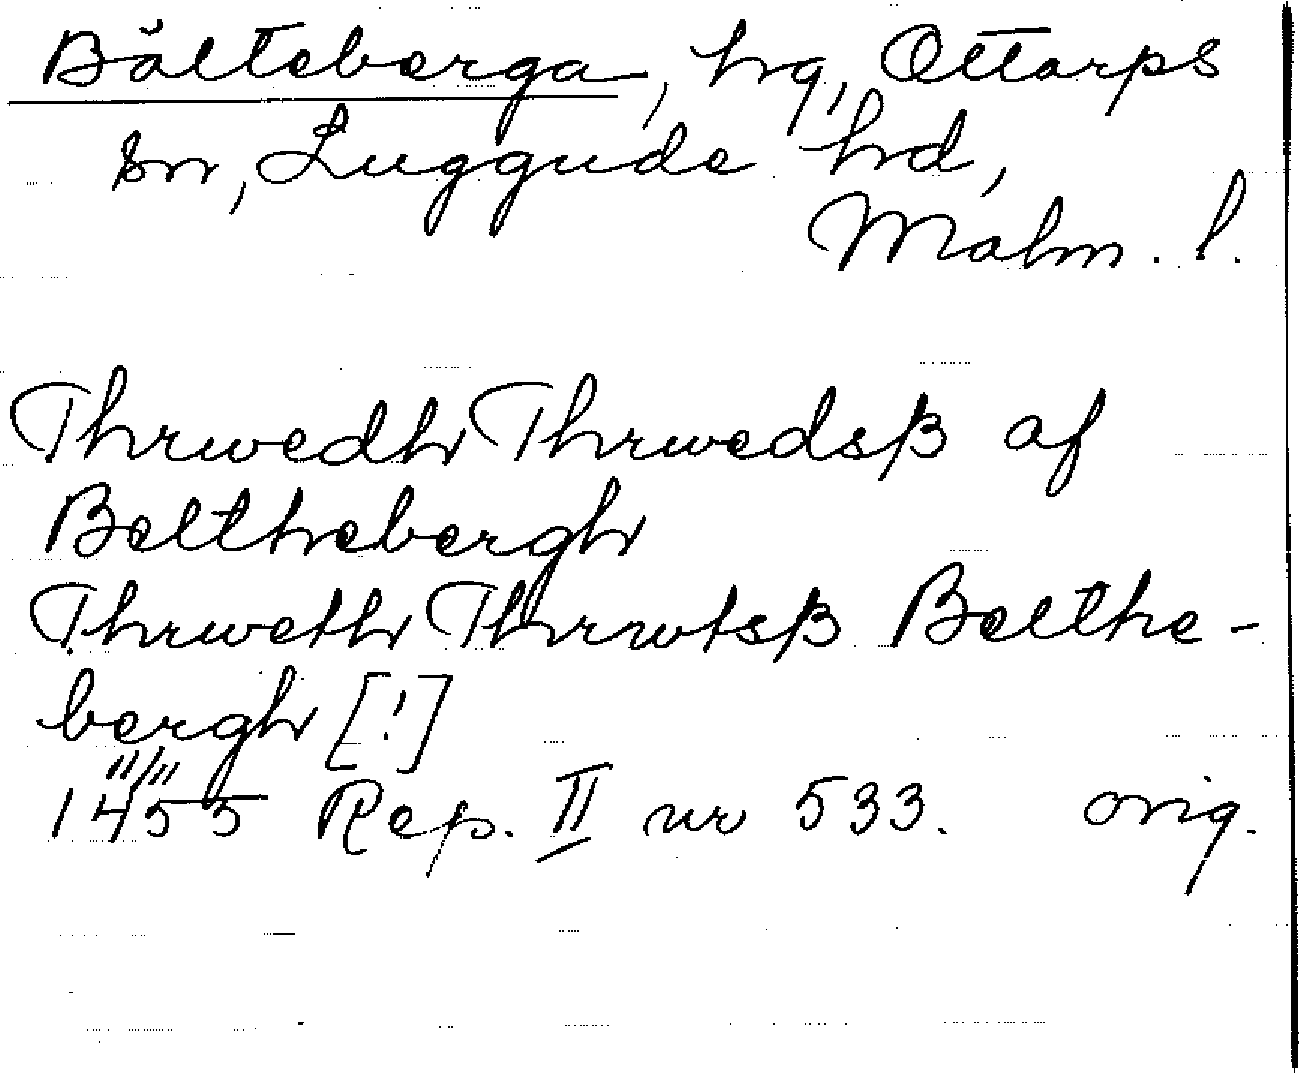 Bälteberga, hg, Ottarps
sn, Luggude hd,
Malm. l.
Thrwedh Thrwedsß af
Belthebergh
Thrweth Thrwtsß Belthe-
bergh [!]
11/11
1455 Rep. II nr 533. orig.